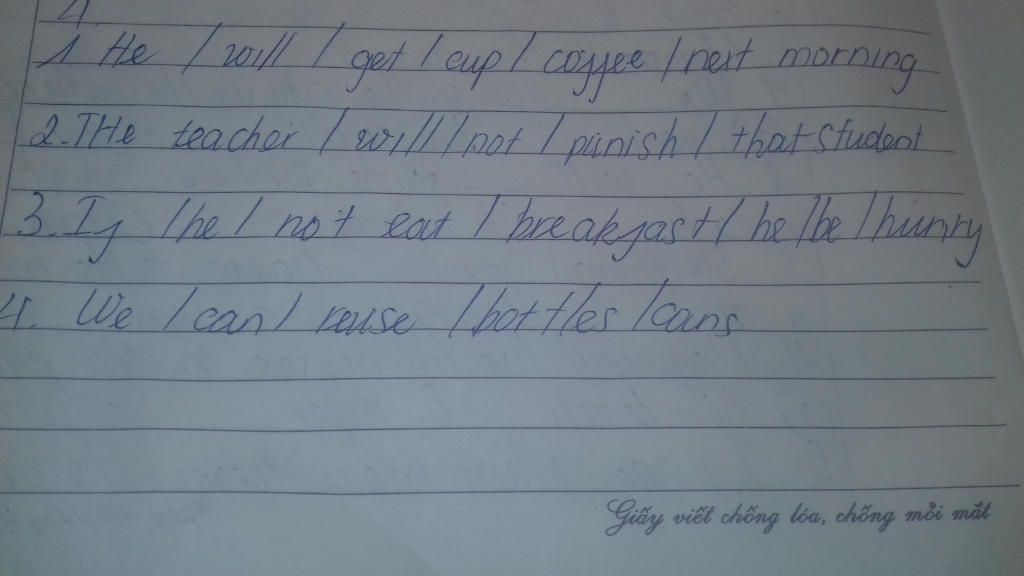 4.
1. He / will / get / cup / coffee / next morning
2. THe teacher / will / not / punish / that student
3. If / he / not eat / breakfast / he / be / hunry
4. We / can / reuse / bottles / cans
Giấy viết chống lóa, chống mỏi mắt